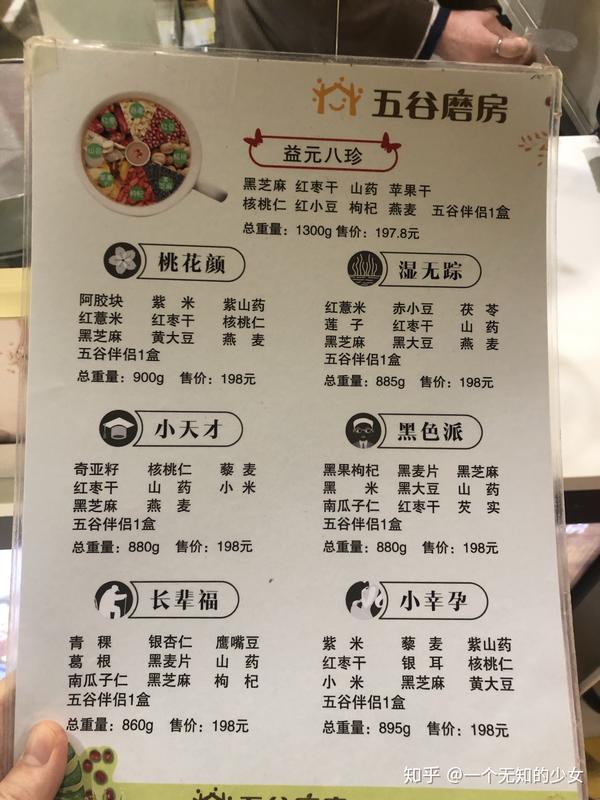 五谷磨房
益元八珍
黑芝麻 红枣干 山药 苹果干
核桃仁 红小豆 枸杞 燕麦 五谷伴侣1盒
总重量：1300g 售价：197.8元
桃花颜
阿胶块 紫米 紫山药
红薏米 红枣干 核桃仁
黑芝麻 黄大豆 燕麦
五谷伴侣1盒
总重量：900g 售价：198元
湿无踪
红薏米 赤小豆 茯苓
莲子 红枣干 山药
黑芝麻 黑大豆 燕麦
五谷伴侣1盒
总重量：885g 售价：198元
小天才
奇亚籽 核桃仁 藜麦
红枣干 山药 小米
黑芝麻 燕麦
五谷伴侣1盒
总重量：880g 售价：198元
黑色派
黑果枸杞 黑麦片 黑芝麻
黑米 黑大豆 山药
南瓜子仁 红枣干 芡实
五谷伴侣1盒
总重量：880g 售价：198元
长辈福
青稞 银杏仁 鹰嘴豆
葛根 黑麦片 山药
南瓜子仁 黑芝麻 枸杞
五谷伴侣1盒
总重量：860g 售价：198元
小幸孕
紫米 藜麦 紫山药
红枣干 银耳 核桃仁
小米 黑芝麻 黄大豆
五谷伴侣1盒
总重量：895g 售价：198元
知乎 @一个无知的少女